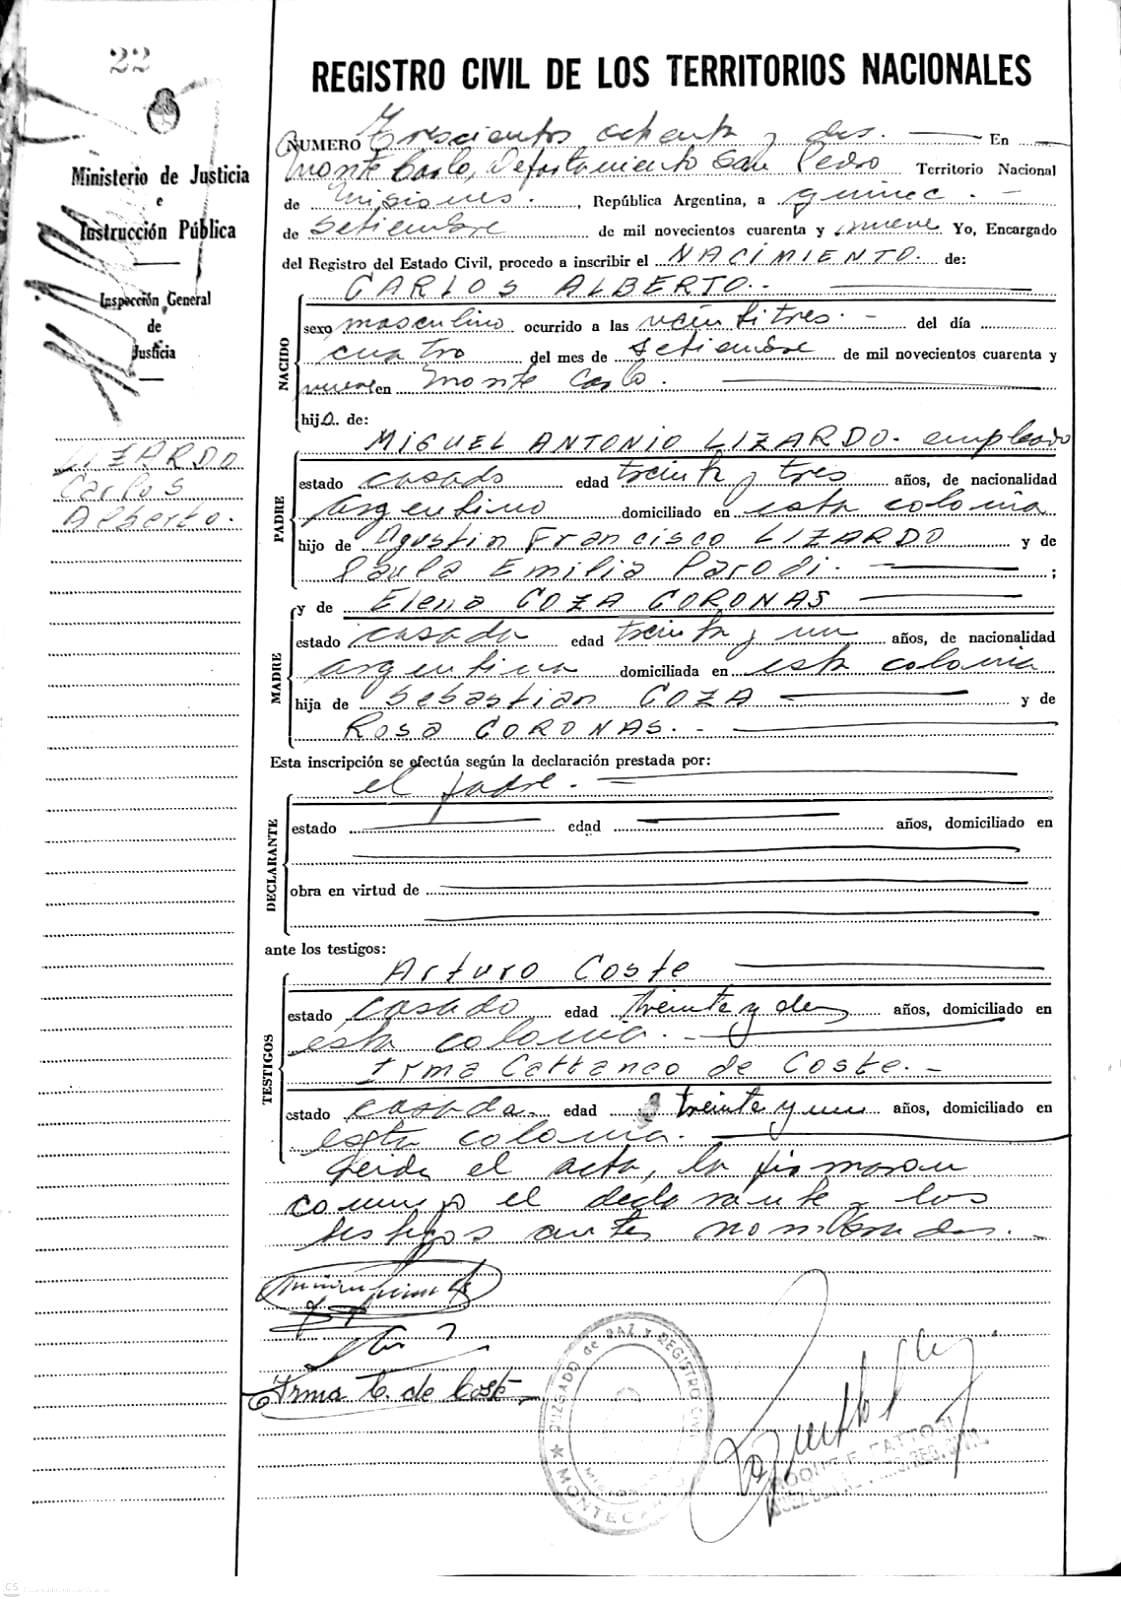 22
REGISTRO CIVIL DE LOS TERRITORIOS NACIONALES
Ministerio de Justicia
e
Instrucción Pública
Inspección General
de
Justicia
LIZARDO
Carlos
Alberto.
NUMERO Trescientos ochenta y dos. En
Monte Carlo, Departamento San Pedro Territorio Nacional
de Misiones. , República Argentina, a quince
de Setiembre de mil novecientos cuarenta y nueve Yo, Encargado
del Registro del Estado Civil, procedo a inscribir el NACIMIENTO. de:
CARLOS ALBERTO.
NACIDO
sexo masculino ocurrido a las veintitres. del día
cuatro del mes de setiembre de mil novecientos cuarenta y
nueve en Monte Carlo.
hijo. de:
MIGUEL ANTONIO LIZARDO. empleado
PADRE
estado casado edad treinta y tres años, de nacionalidad
argentino domiciliado en esta colonia
hijo de Agustin Francisco LIZARDO y de
Paula Emilia Parodi. ;
y de Elena COZA CORONAS
MADRE
estado casada edad treinta y un años, de nacionalidad
argentina domiciliada en esta colonia
hija de Sebastian COZA y de
Rosa CORONAS.
Esta inscripción se efectúa según la declaración prestada por:
el padre.
DECLARANTE
estado edad años, domiciliado en
obra en virtud de
ante los testigos:
Arturo Coste
TESTIGOS
estado casado edad treinta y dos años, domiciliado en
esta colonia.
Irma Cattaneo de Coste.
estado casada edad treinta y un años, domiciliado en
esta colonia.
Leida el acta, la firmaron
conmigo el declarante y los
testigos antes nombrados.
Irma C. de Coste
JUZGADO de PAZ Y REGISTRO CIVIL
MONTECARLO
ROQUE F. FATTORI
CS